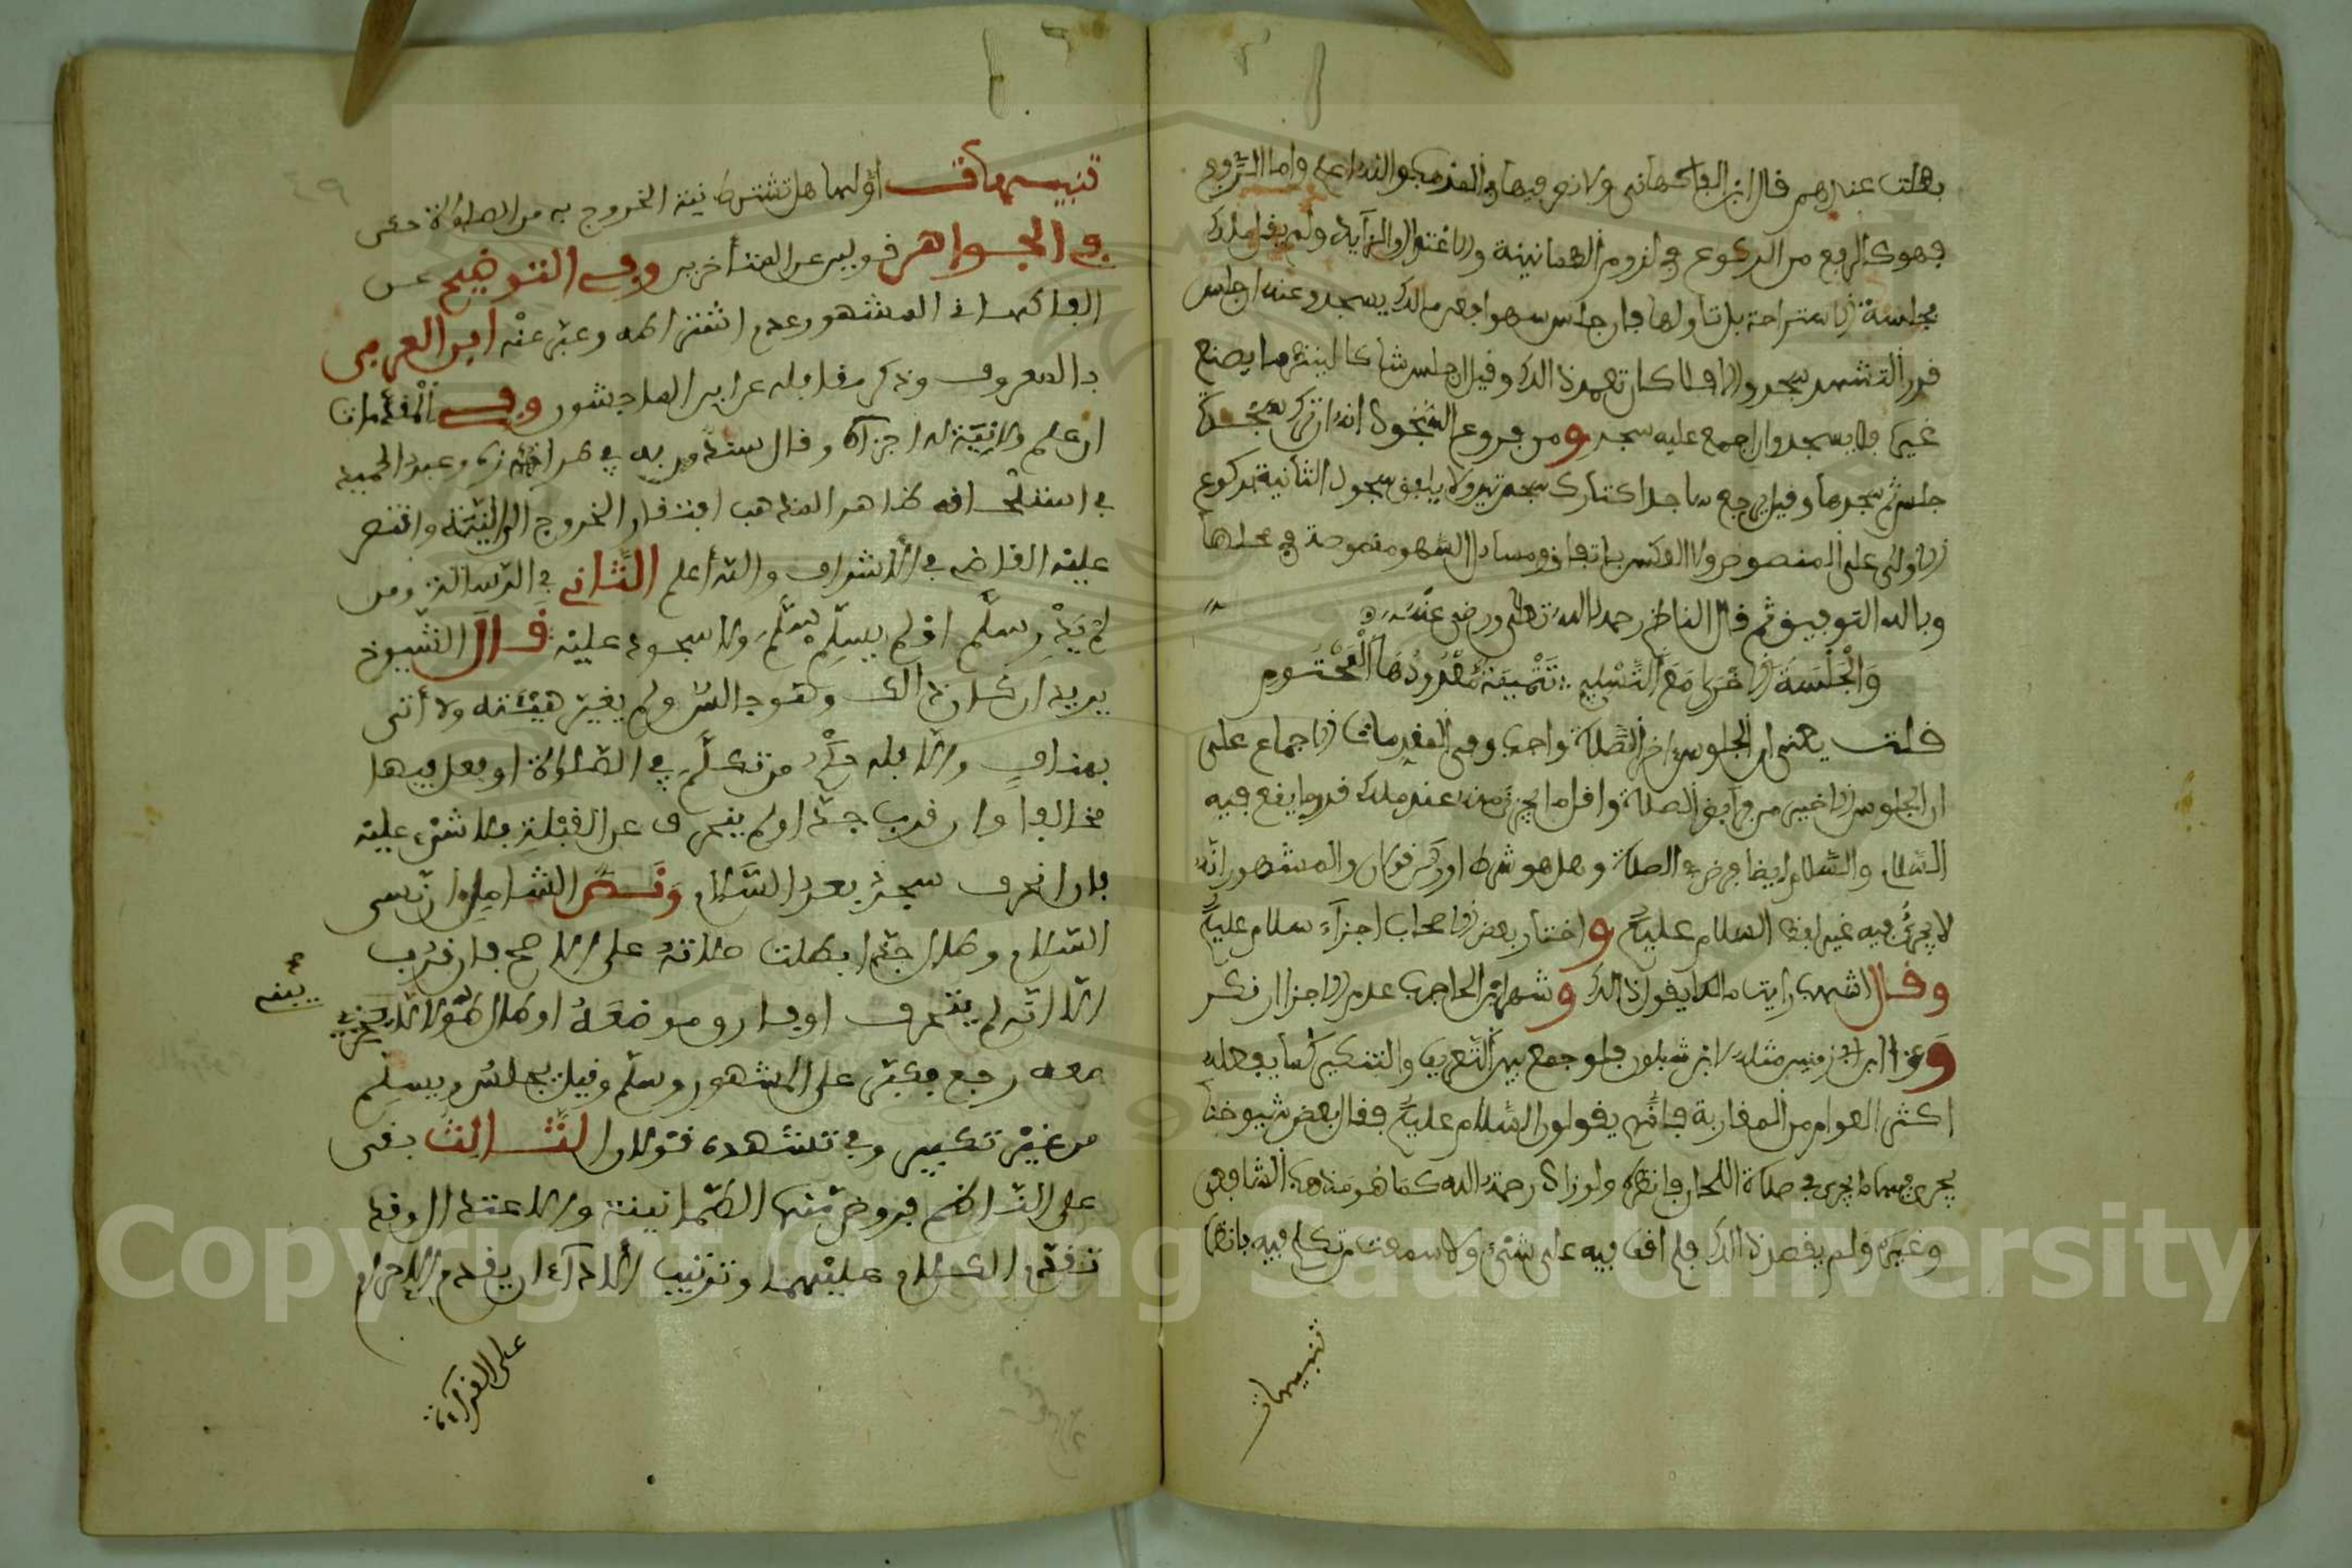 بطلت عندهم قال ابن الفاكهاني ولا نص فيها في المذهب والله اعلم واما الرفع
فهو كالرفع من الركوع في لزوم الطمانينة والاعتدال والزايد ولم يقل مالك
بجلسة الاستراحة بل تاولها فان جلس سهوا فعن مالك يسجد وعنه ان جلس
قدر التشهد سجد والا فلا كان تعمد ذالك وقيل ان جلس شاكا لينظر ما يصنع
غيره فلا يسجد وان اجمع عليه سجد ومن فروع السجود انه ان ترك سجدة
جلس ثم سجدها وقيل يرجع ساجدا كتارك سجدتين ولا يلفق سجود الثانية لركوع
الاولى على المنصوص ولا العكس باتفاق ومسايل السهو منصوصة في محلها
وبالله التوفيق ثم قال الناظم رحمه الله تعالى ورضي عنه
وَالْجَلْسَةُ الاخرى مَعَ التَّسْلِيمِ تَتْمِيَةٌ مَعْدُودُهَا الْمَحْتُومِ
قلت يعني ان الجلوس اخر الصلاة واجب وفي المقدمات الاجماع على
ان الجلوس الاخير من فرايض الصلاة واقل ما يجزئ منه عند مالك قدر ما يقع فيه
السلام والسلام ايضا فرض في الصلاة وهل هو شرط او ركن قولان والمشهور انه
لا يجزئ فيه غير لفظ السلام عليكم واختار بعض الاصحاب اجزاء سلام عليكم
وقال اشهب رايت مالكا يقول ذالك وشهر ابن الحاجب عدم الاجزا ان نكر
وعزا ابن مثله لابن شبلون فلو جمع بين التعريف والتنكير كما يفعله
اكثر العوام من المغاربة فانهم يقولون السلام عليكم فقال بعض شيوخنا
يجري فيها ما يجري في صلاة اللحان فانظره ولو زاد ورحمة الله كما هو مذهب الشافعي
وغيره ولم يقصد ذالك فلم اقف فيه على شيء ولا سمعت من تكلم فيه فانظره
تنبيهات
٤٩
تنبيهات اولها هل تشترط نية الخروج به من الصلاة حكى
في الجواهر قولين عن المتأخرين وفي التوضيح عن
الفاكهاني المشهور عدم اشتراطه وعبر عنه ابن العربي
بالمعروف وذكر مقابله عن ابن الماجشون وفي المقدمات
ان علم ولا نية له اجزأه وقال سند وعبد الحميد
في استلحاقه ظاهر المذهب افتقار الخروج الى النية واقتصر
عليه القاضي في الاشراف والله أعلم الثَّاني في الرسالة ومن
لم يَدْرِ سلَّم او لم يسلِّم سلَّمَ ولا سجود عليه قَالَ الشيوخ
يريد ان شك في ذالك وهو جالس ولم يغير هيئته ولا أتى
بمناف والا فله حكم من تكلم في الصلاة او فعل فيها
مخالفا وان قرب جدا ولم ينحرف عن القبلة فلا شيء عليه
فان انحرف سجد بعد السلام وَنَصَّ الشامل ان نسي
السلام وطال جدا بطلت صلاته على الاصح فان قرب
الا انه لم ينحرف او فارق موضعه او طال طولا لا
معه رجع فكبر على المشهور وسلم وقيل يجلس ويسلم
من غير تكبير وفي تشهده قولان الثَّالثُ بقي
على الناظم فروض منها الطمانينة والاعتدال وقد
تقدم الكلام عليهما وترتيب الادآء ان يقدم الاحرام
على القرآءة
Copyright © King Saud University